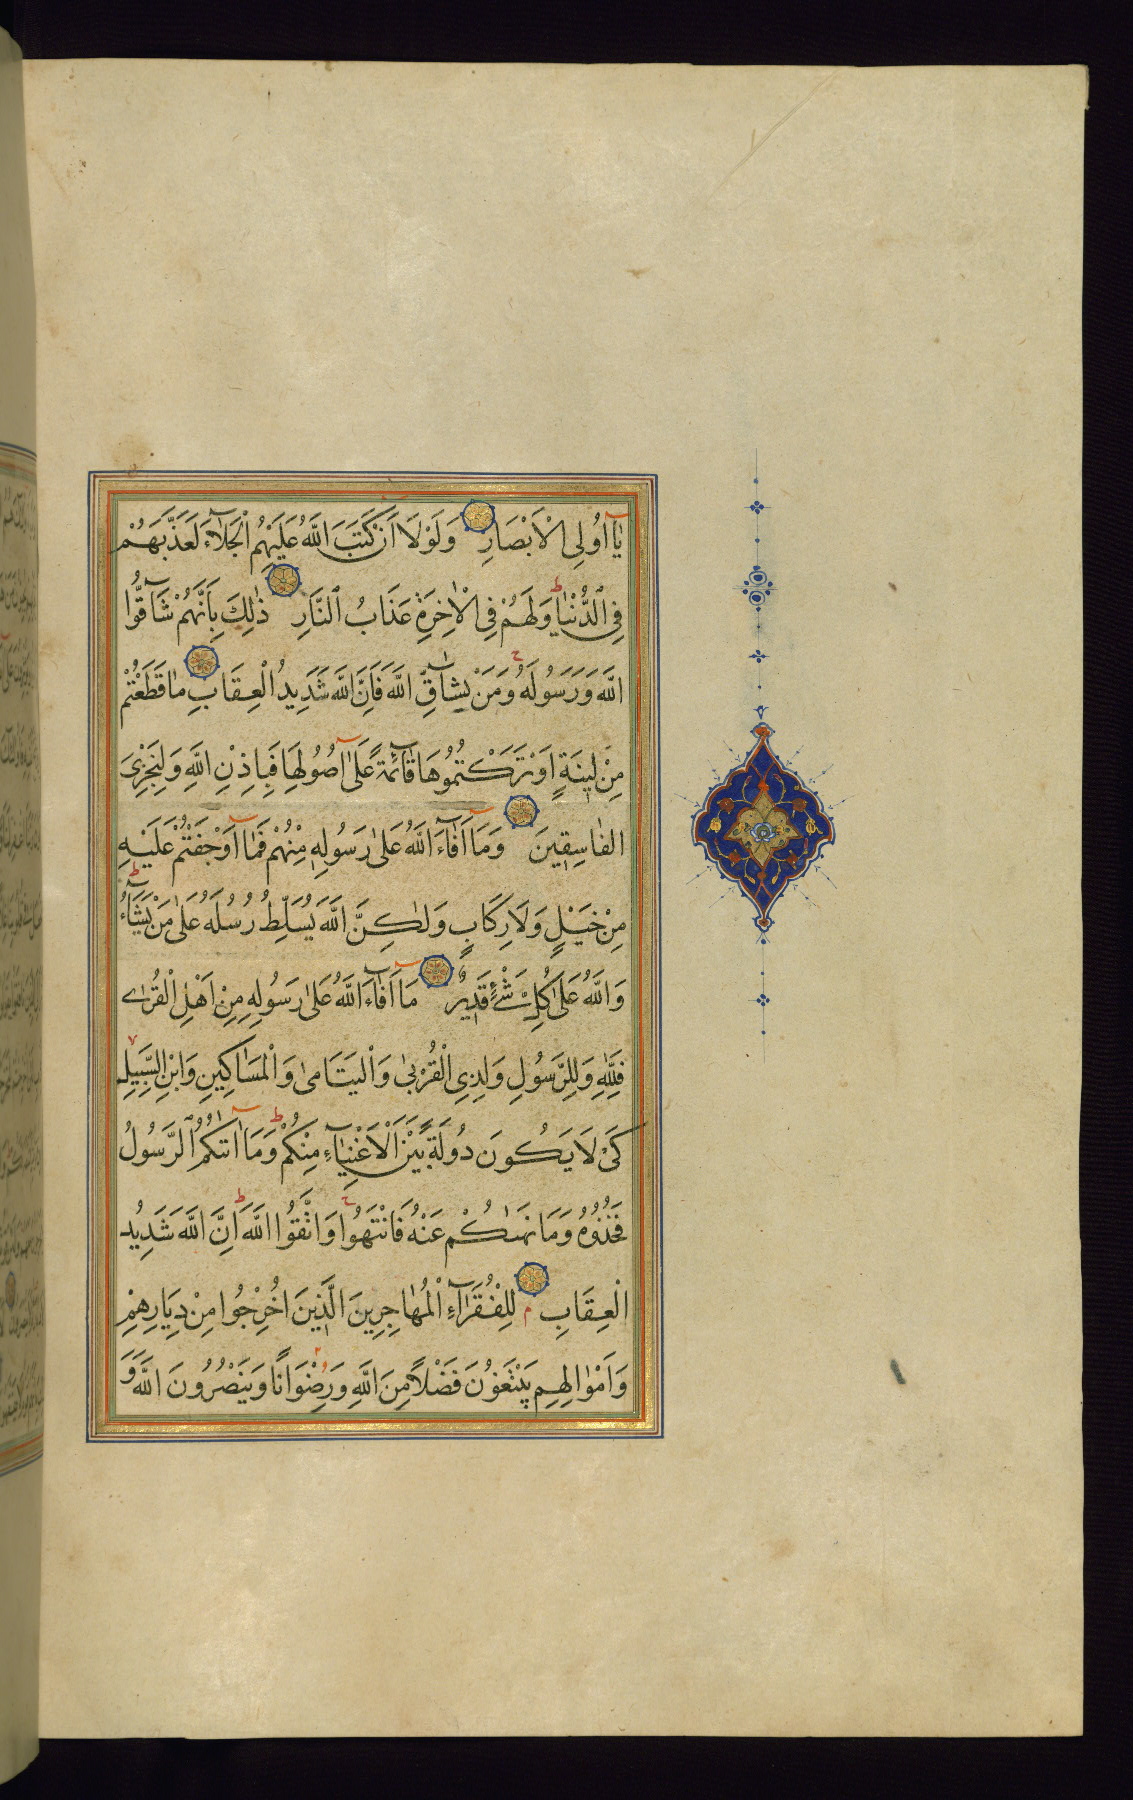 يَا اُولِى الْاَبْصَارِ وَلَوْلَا اَنْ كَتَبَ اللّٰهُ عَلَيْهِمُ الْجَلَآءَ لَعَذَّبَهُمْ
فِى الدُّنْيَا وَلَهُمْ فِى الْاٰخِرَةِ عَذَابُ النَّارِ ذٰلِكَ بِاَنَّهُمْ شَآقُّوا
اللّٰهَ وَرَسُولَهُ وَمَنْ يُشَآقِّ اللّٰهَ فَاِنَّ اللّٰهَ شَدِيدُ الْعِقَابِ مَا قَطَعْتُمْ
مِنْ لِينَةٍ اَوْ تَرَكْتُمُوهَا قَآئِمَةً عَلٰى اُصُولِهَا فَبِاِذْنِ اللّٰهِ وَلِيُخْزِىَ
الفَاسِقِينَ وَمَا اَفَآءَ اللّٰهُ عَلٰى رَسُولِهِ مِنْهُمْ فَمَا اَوْجَفْتُمْ عَلَيْهِ
مِنْ خَيْلٍ وَلَا رِكَابٍ وَلٰكِنَّ اللّٰهَ يُسَلِّطُ رُسُلَهُ عَلٰى مَنْ يَشَآءُ
وَاللّٰهُ عَلٰى كُلِّ شَىْءٍ قَدِيرٌ مَا اَفَآءَ اللّٰهُ عَلٰى رَسُولِهِ مِنْ اَهْلِ الْقُرٰى
فَلِلّٰهِ وَلِلرَّسُولِ وَلِذِى الْقُرْبٰى وَالْيَتَامٰى وَالْمَسَاكِينِ وَابْنِ السَّبِيلِ
كَىْ لَا يَكُونَ دُولَةً بَيْنَ الْاَغْنِيَآءِ مِنْكُمْ وَمَا اٰتٰكُمُ الرَّسُولُ
فَخُذُوهُ وَمَا نَهٰىكُمْ عَنْهُ فَانْتَهُوا وَاتَّقُوا اللّٰهَ اِنَّ اللّٰهَ شَدِيدُ
الْعِقَابِ لِلْفُقَرَآءِ الْمُهَاجِرِينَ الَّذِينَ اُخْرِجُوا مِنْ دِيَارِهِمْ
وَاَمْوَالِهِمْ يَبْتَغُونَ فَضْلًا مِنَ اللّٰهِ وَرِضْوَانًا وَيَنْصُرُونَ اللّٰهَ وَ